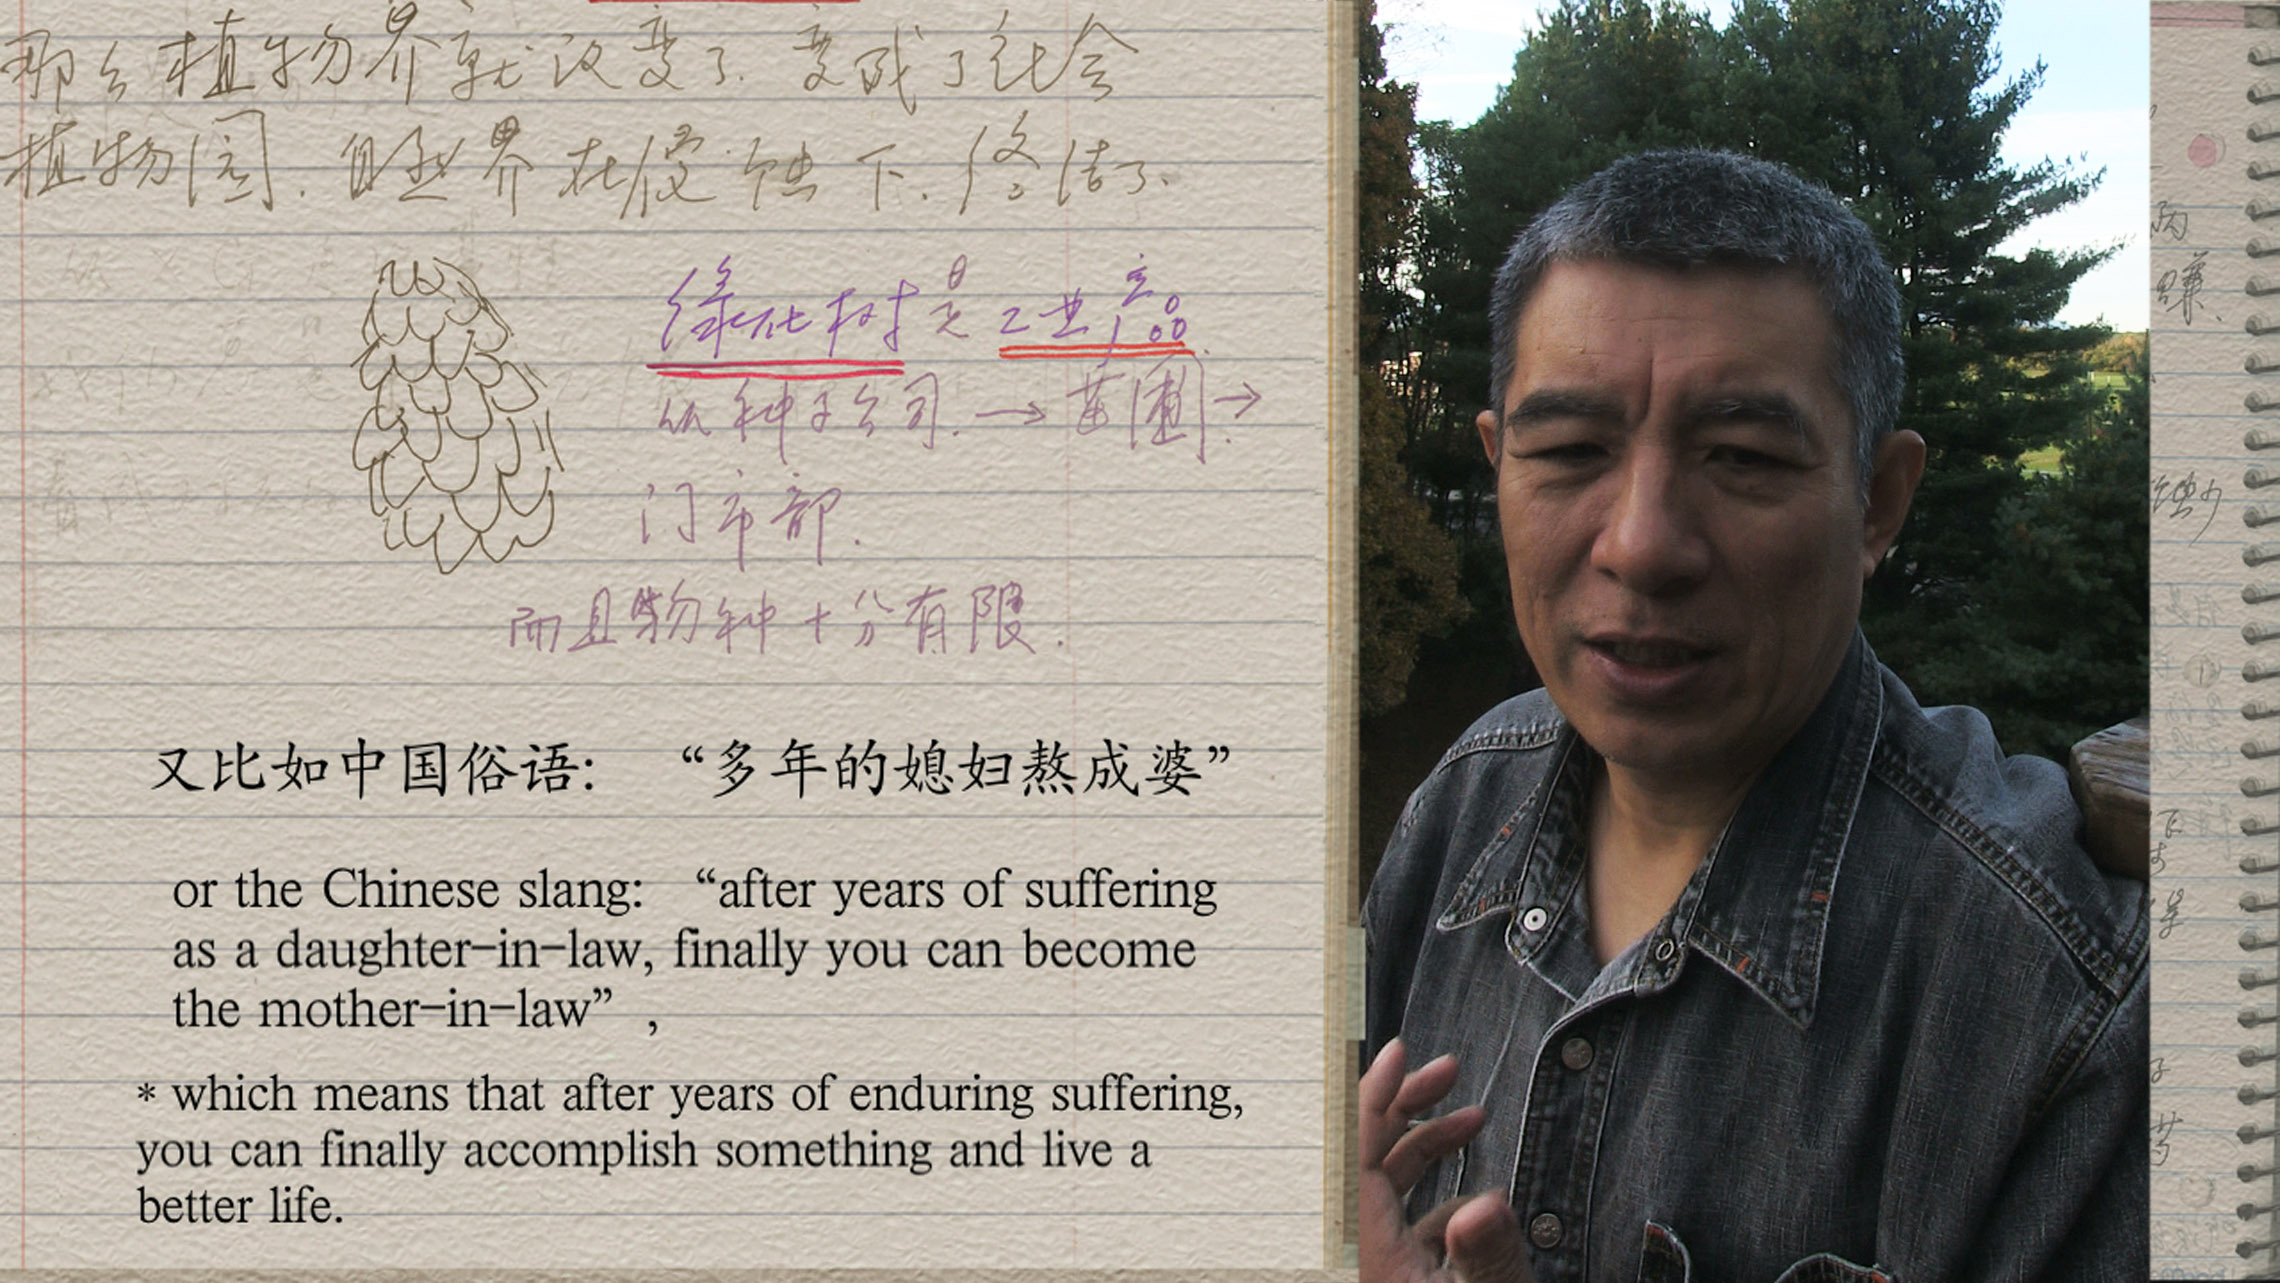 那么植物界就改变了.变成了社会
植物园.自然界在侵蚀下.终结了.
绿化树是工业产品.
从种子公司.→苗圃.→
门市部.
而且物种十分有限.
又比如中国俗语: “多年的媳妇熬成婆”
or the Chinese slang: “after years of suffering
as a daughter-in-law, finally you can become
the mother-in-law” ,
* which means that after years of enduring suffering,
you can finally accomplish something and live a
better life.